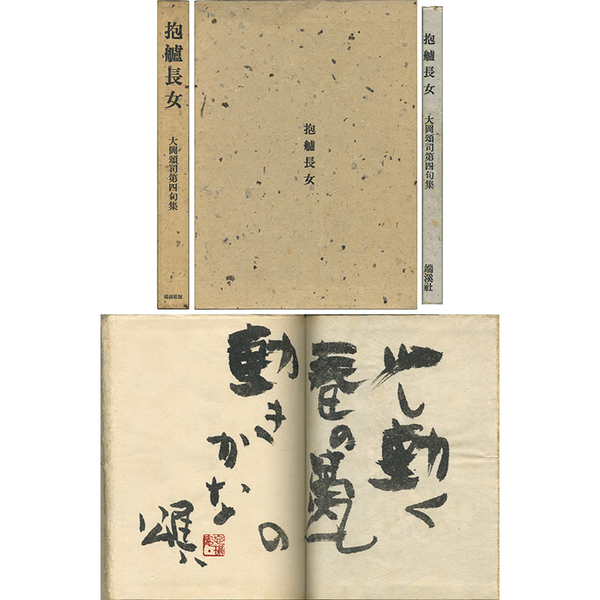 抱艫長女
大岡頌司第四句集
抱艫長女
抱艫長女
大岡頌司第四句集
端溪社
少し動く
春の甍
の
動きかな